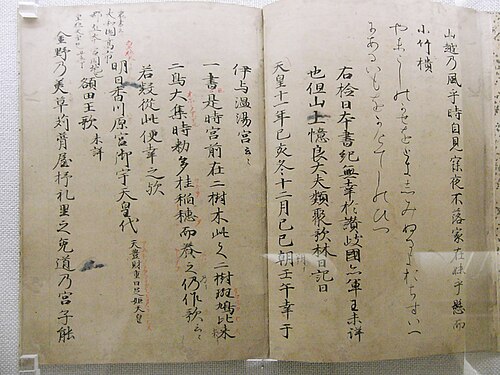 山越乃風乎時自見寐夜不落家在妹乎懸而
小竹樻
やまこしのかせをときしみぬるよおちすいへ
にあるいもをかけてしのひつ
右検日本書紀無幸於讃岐國亦軍王未詳
也但山上憶良大夫類聚歌林日記曰
天皇十一年己亥冬十二月己巳朔壬午幸于
伊与温湯宮云々
一書是時宮前在二樹木此之二樹斑鳩比米
二鳥大集時勅多桂稲穂而養之仍作歌云々
若疑従此便幸之歟
明日香川原宮御宇天皇代 天豊財重日足姫天皇
額田王歌 未詳
金野乃美草苅葺屋杼礼里之兎道乃宮子能